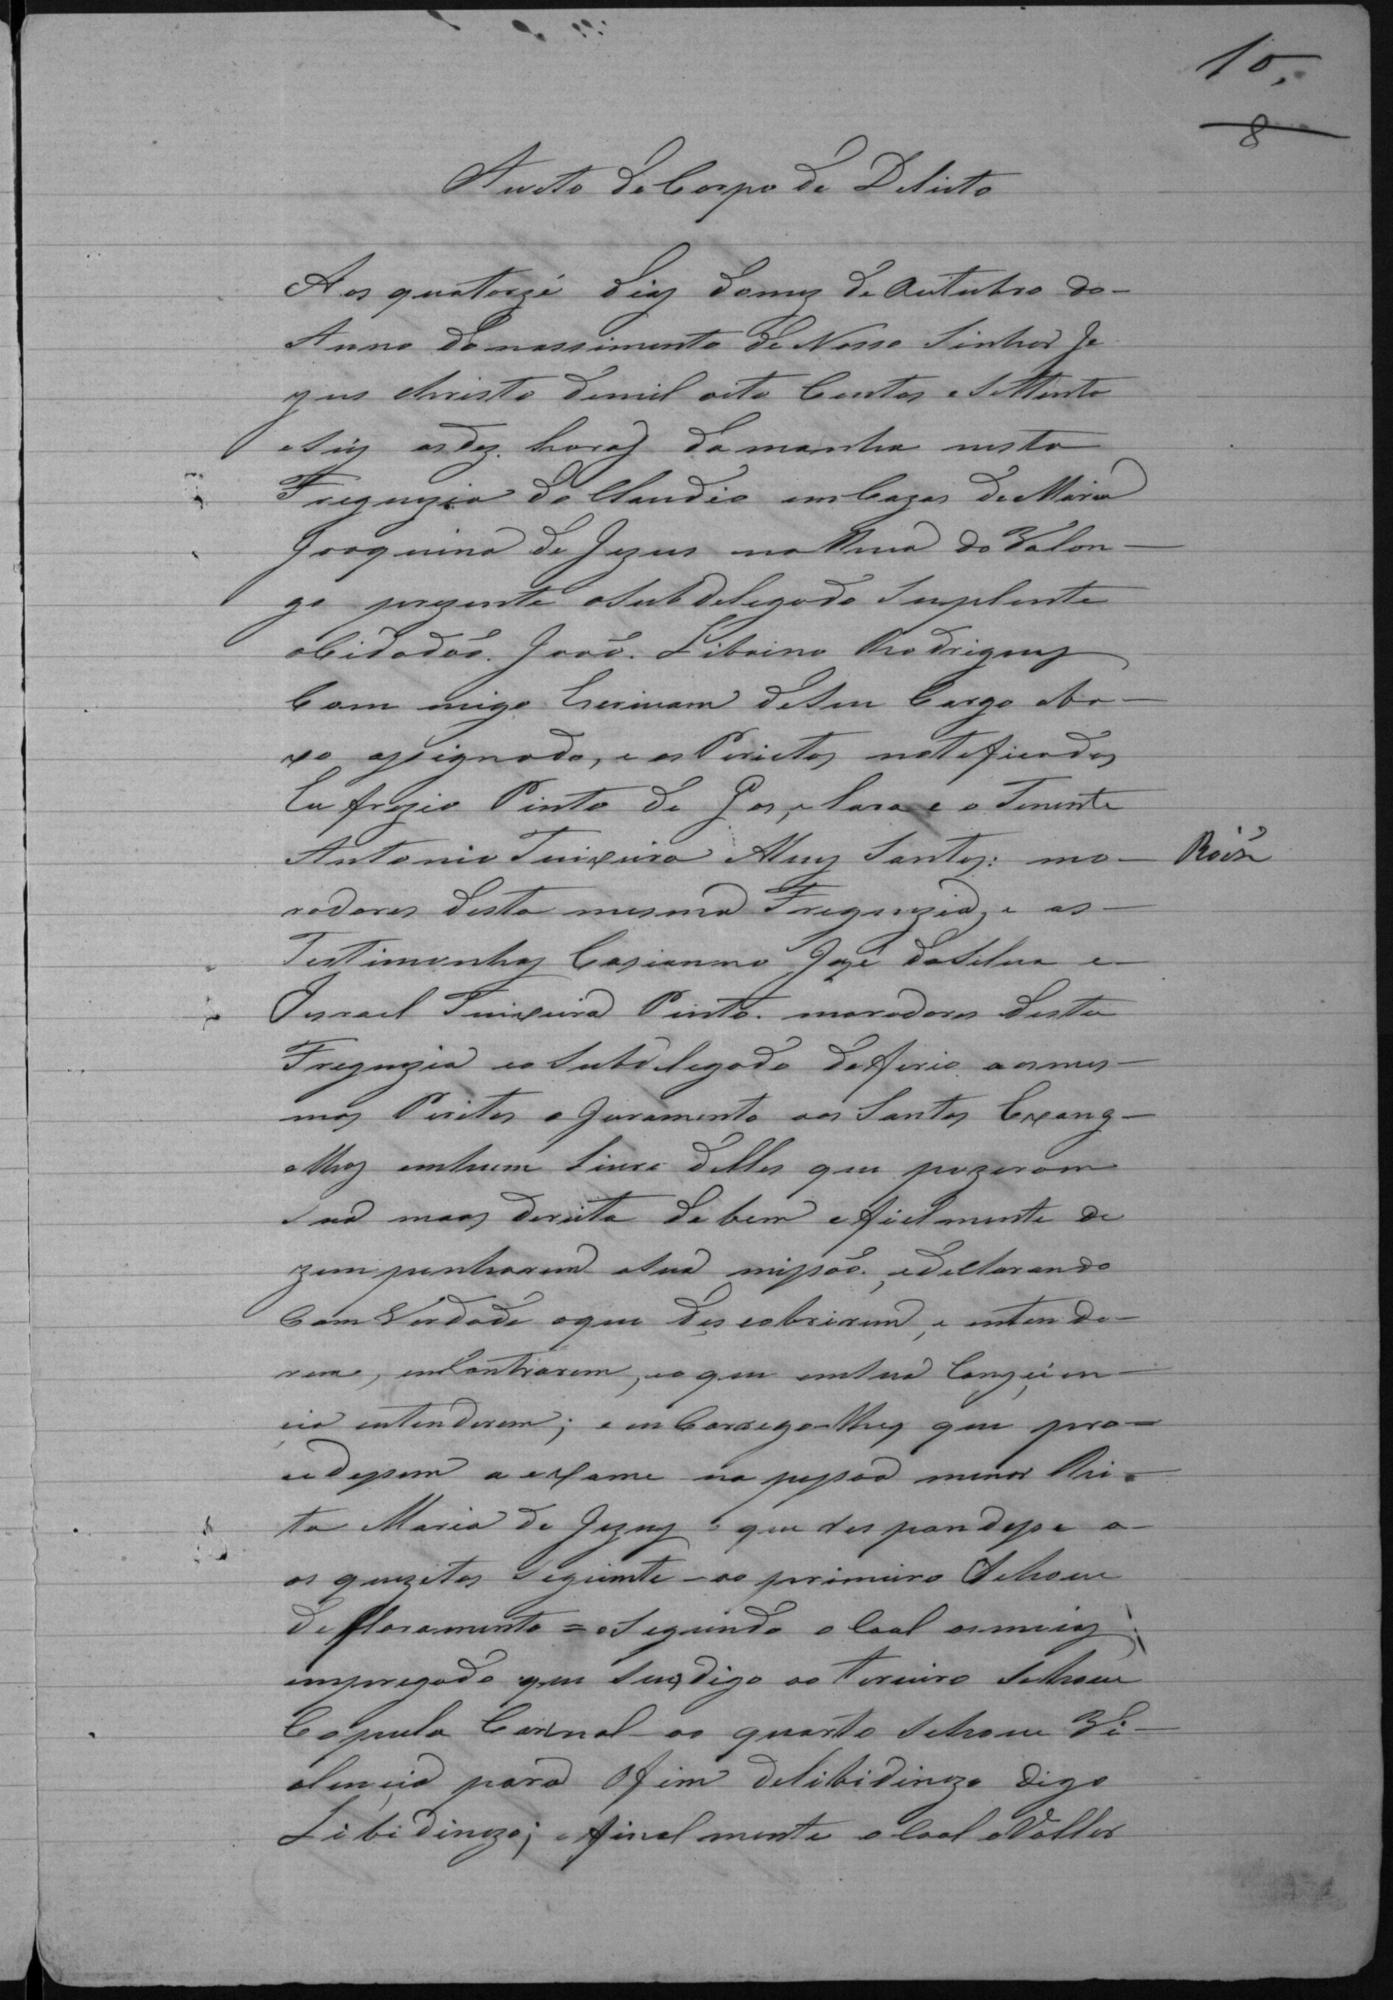 10.
8
Aucto de Corpo de Delicto
Aos quatorze dias do mez de Outubro do
Anno do nassimento de Nosso Sinhor Je
zus Christo demil oito Centos e Settenta
e Seis as dez horas da manha nesta
Freguzia do Claudio em Cazas de Maria
Joaquina de Jezus na Rua do Valon
go prezente o Subdelegado Suplente
o Cidadão João Libaino Rodrigues
Com migo Escrivam de seu Cargo aba
xo assignado, e os Perictos noteficados
Eufrazio Pinto de Gos, e Lara e o Tenente
Antonio Teixeira Alves Santos: mo
radores desta mesma Freguzia, e as
Testimunhas Casianno José da Silva e
Israel Teixeira Pinto moradores desta
Freguzia e o Subdelegado deferio aos mes
mos Perites o Juramento aos Santos Evang
elhos em hum Livro delles que pozeram
sua maos dereita de bem e fielmente de
zempenharem a sua missão, e declarando
Com Verdade o que descobrirem, e entende
rem, emContrarem, e o que em sua Conçien
cia entenderem; e emCarrega-lhes que pro
cedessem a exame na pessoa menor Ri
ta Maria de Jezus e que respondesse a
os quezitos Seguinte - ao primeiro Se houve
defloramento = o segundo o Coal os meios
empregado que Seus, digo ao terceiro Se houve
Copula Carnal - ao quarto Se houve Vi
olencia para o fim delibidinozo digo
Libidinozo; e finalmente o Coal o Vallor